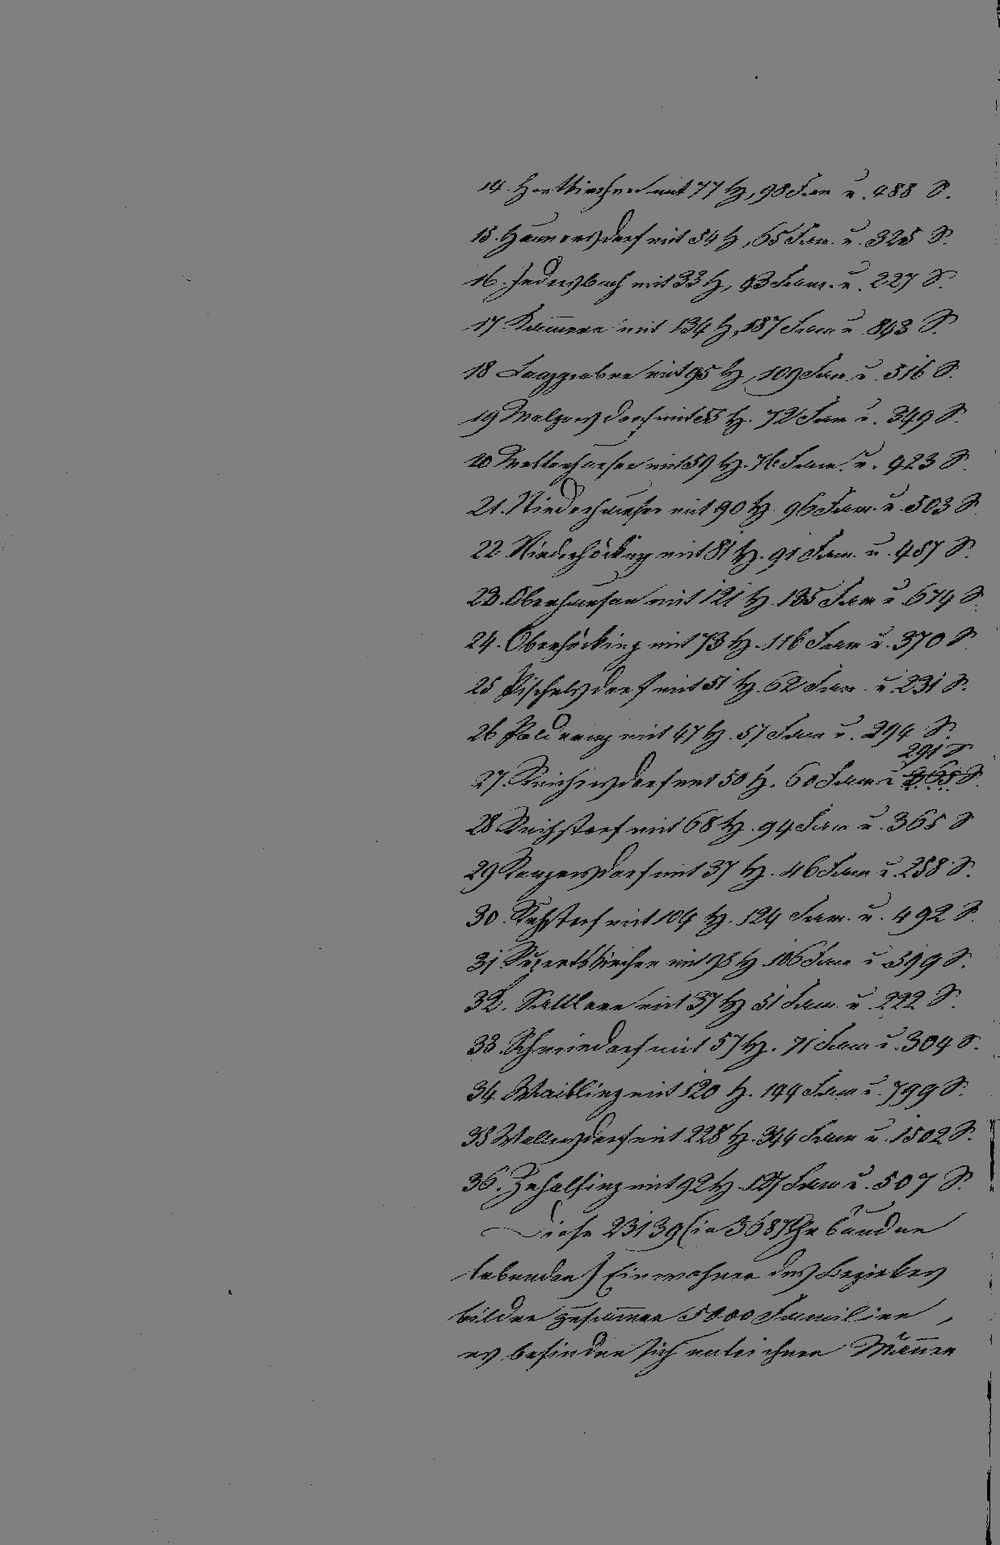 14. Hartkirchen mit 77 H, 98 Fam u. 488 S.
15. Haunersdorf mit 54 H, 65 Fam. u. 325 S.
16. Indersbach mit 33 H, 43 Fam. u. 227 S.
17 Kammern mit 134 H, 187 Fam u. 843 S.
18 Langgraben mit 95 H, 109 Fam u. 516 S.
19 Malgersdorf mit 55 H. 72 Fam u. 349 S.
20 Mettenhausen mit 59 H. 76 Fam. u. 423 S.
21. Niederhausen mit 90 H. 96 Fam. u. 503 S
22. Niederhöcking mit 81 H. 91 Fam. u. 457 S.
23. Oberhausen mit 121 H. 135 Fam u. 674 S
24. Oberhöcking mit 73 H. 116 Fam u. 370 S.
25 Pischelsdorf mit 51 H. 62 Fam. u. 231 S.
26 Poldering mit 47 H. 57 Fam u. 294 S.
291 S
27. Reichersdorf mit 50 H. 60 Fam u 365 S
28 Reichstorf mit 68 H. 94 Fam u. 365 S
29 Rengersdorf mit 37 H. 46 Fam u. 258 S.
30. Ruhstorf mit 104 H. 124 Fam. u. 492 S.
31. Rupertskirchen mit 95 H 106 Fam u 599 S.
32. Sallach mit 37 H 51 Fam. u. 222 S.
33. Schmiedorf mit 57 H. 71 Fam u. 304 S.
34. Waibling mit 120 H. 144 Fam u. 799 S.
35 Wallersdorf mit 228 H. 344 Fam u. 1502 S.
36. Zeholfing mit 92 H. 127 Fam u. 507 S.
Diese 23139 (in 3687 Gebäuden
lebenden) Einwohner des Bezirkes
bilden zusammen 5000 Familien,
es befinden sich unter ihnen Männer